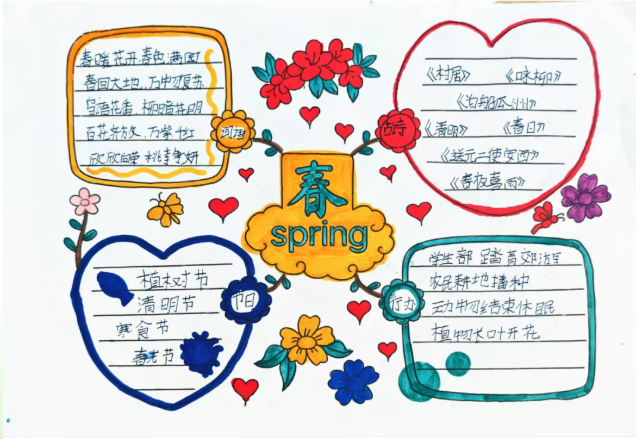 春暖花开 春色满园
春回大地,万物复苏
鸟语花香,柳暗花明
百花齐放,万紫千红
欣欣向荣 桃李争妍
词语
春
spring
古诗
《村居》 《咏柳》
《泊船瓜洲》
《清明》 《春日》
《送元二使安西》
《春夜喜雨》
节日
植树节
清明节
寒食节
学生 踏青郊游
农民耕地播种
动物结束休眠
植物长叶开花